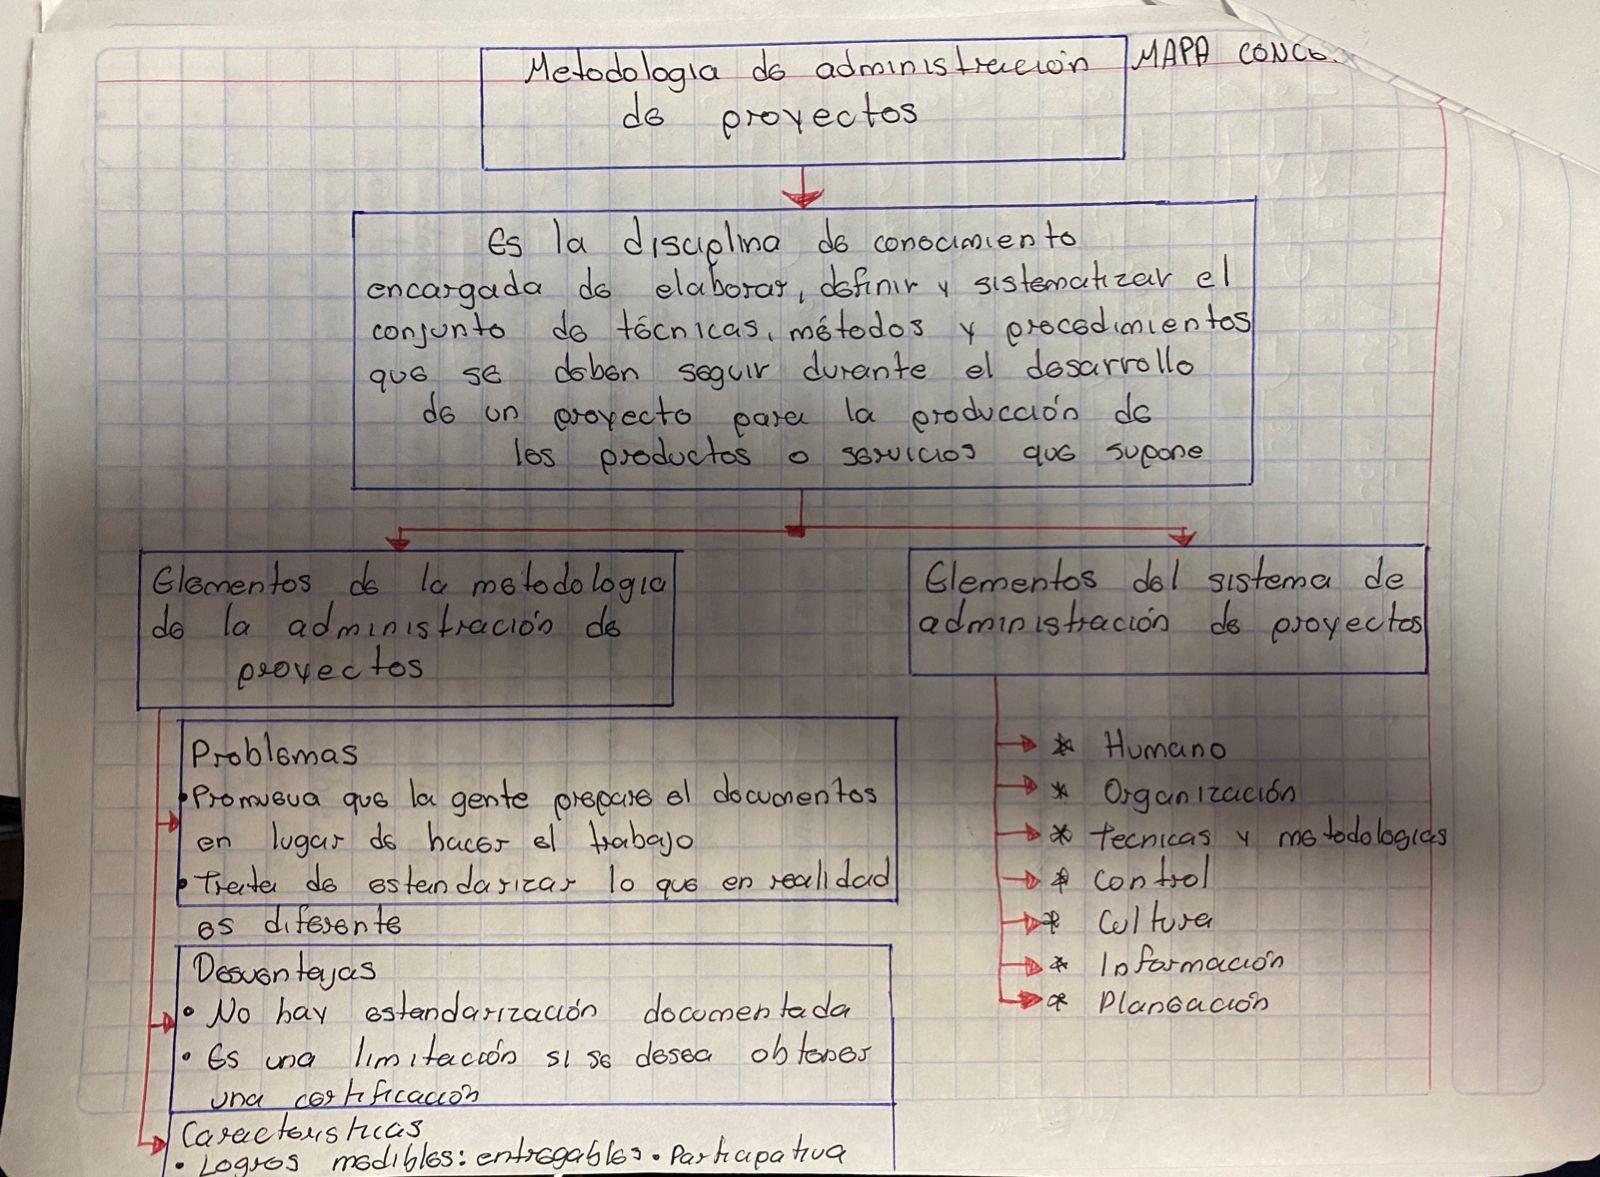 Metodologia de administración
de proyectos
MAPA CONC
Es la disciplina de conocimiento
encargada de elaborar, definir y sistematizar el
conjunto de técnicas, métodos y procedimientos
que se deben seguir durante el desarrollo
de un proyecto para la producción de
los productos o servicios que supone
Elementos de la metodologia
de la administración de
proyectos
Problemas
• Promueva que la gente prepare el documentos
en lugar de hacer el trabajo
• Trata de estandarizar lo que en realidad
es diferente
Desventajas
• No hay estandarización documentada
• Es una limitación si se desea obtener
una certificación
Caracteristicas
• Logros medibles: entregables • Participativa
Elementos del sistema de
administración de proyectos
* Humano
* Organización
* Tecnicas y metodologias
* Control
* Cultura
* Información
* Planeación